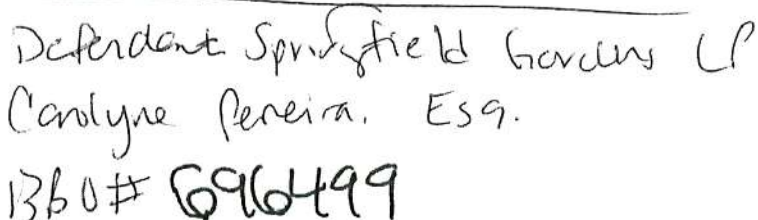 Defendant Springfield Gardens LP
Carolyne Pereira, Esq.
BBO# 696499